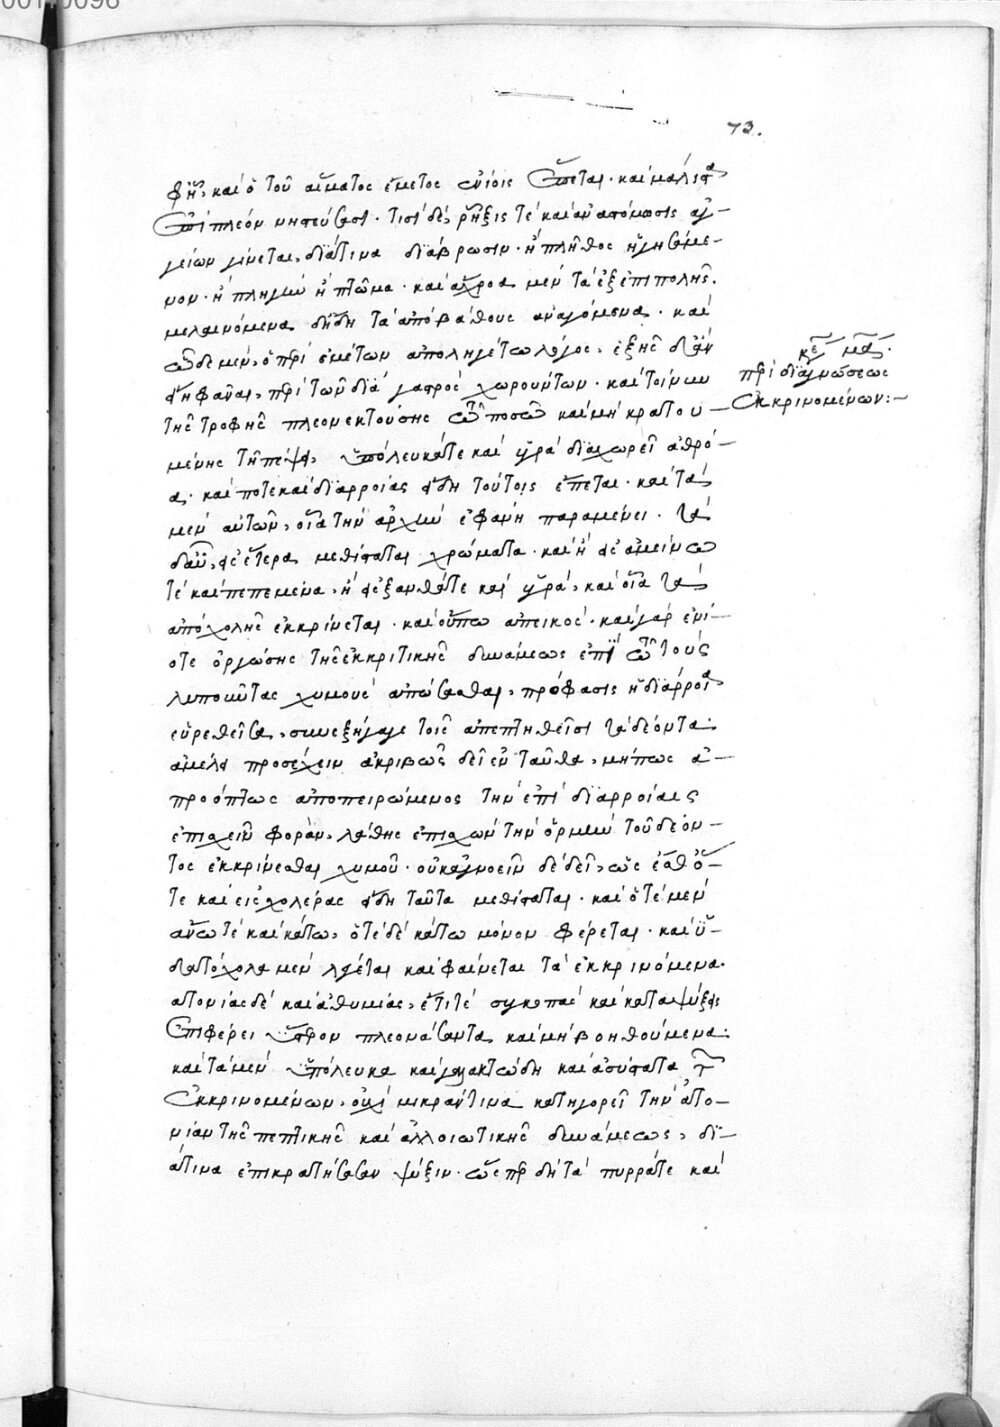 73.
φὴ, καὶ ὁ τοῦ αἵματος ἔμετος ἐνίοις ἕπεται· καὶ μάλιστα
ἐπὶ πλέον νηστεύσασι· τισὶ δὲ, ῥῆξις τὲ καὶ ἀναστόμωσις ἀγ-
γείων γίνεται, διά τινα διάβρωσιν· ἢ πλῆθος ἡγησάμε-
νον· ἢ πληγὴν ἢ πτῶμα· καὶ ἄχροα μὲν τὰ ἐξεπιπολῆς.
μελαινόμενα δ' ἤδη τὰ ἀπὸ βάθους ἀναγόμενα· καὶ
ὧδε μὲν, ὁ περὶ ἐμέτων ἀποληγέτω λόγος, ἑξῆς δ' ἂν
εἴη φᾶναι, περὶ τῶν διὰ γαστρὸς χωρούντων· καὶ τοίνυν
κεφ μα.
περὶ διαγνώσεως
ἐκκρινομένων:-
τῆς τροφῆς πλεονεκτούσης ἐν τῷ ποσῷ καὶ μὴ κρατου-
μένης τῇ πέψει, ὑπόλευκά τε καὶ ὑγρὰ διαχωρεῖ ἀθρό-
α· καὶ ποτε καὶ διαρροίας εἴδη τούτοις ἕπεται· καὶ τὰ
μὲν αὐτῶν, οἷα τὴν ἀρχὴν ἐφάνη παραμένει· τὰ
δ' αὖ, εἰς ἕτερα μεθίσταται χρώματα· καὶ ἢ εἰς ἀμείνω
τὲ καὶ πεπεμένα, ἢ εἰς ξανθά τε καὶ ὑγρὰ, καὶ οἷα τὰ
ἀπὸ χολῆς ἐκκρίνεται· καὶ οὔπω ἀπεικός· καὶ γὰρ ἐνί-
οτε ὀργώσης τῆς ἐκκριτικῆς δυνάμεως ἐπὶ τῷ τοὺς
λυποῦντας χυμοὺς ἀπώσασθαι, πρόφασις ἡ διάρροια
εὑρεθεῖσα, συνεξήγαγε τοῖς ἀπεπτηθεῖσι τὰ δέοντα·
ἀμέλει προσέχειν ἀκριβῶς δεῖ ἐνταῦθα, μήπως ἀ-
προόπτως ἀποπειρώμενος τὴν ἐπὶ διαρροίαις
ἐπισχεῖν φορὰν, λάθῃς ἐπισχὼν τὴν ὁρμὴν τοῦ δέον-
τος ἐκκρίνεσθαι χυμοῦ· οὐκ ἀγνοεῖν δὲ δεῖ, ὡς ἔσθ' ὅ-
τε καὶ εἰς χολέρας εἴδη ταῦτα μεθίσταται· καὶ ὁτὲ μὲν
ἄνω τὲ καὶ κάτω, ὁτὲ δὲ κάτω μόνον φέρεται· καὶ ὕ-
δατόχολα μὲν λέγεται καὶ φαίνεται τὰ ἐκκρινόμενα·
ἀτονίας δὲ καὶ ἀθυμίας, ἔτι τὲ συγκοπὰς καὶ καταψύξεις
ἐπιφέρει ὕστερον πλεονάσαντα καὶ μὴ βοηθούμενα·
καὶ τὰ μὲν ὑπόλευκα καὶ γαλακτώδη καὶ ἀσύστατα τῶν
ἐκκρινομένων, οὐ μικράν τινα κατηγορεῖ τὴν ἀτο-
νίαν τῆς πεπτικῆς καὶ ἀλλοιωτικῆς δυνάμεως, δι-
ά τινα ἐπικρατήσασαν ψύξιν· ὥσπερ δὴ τὰ πυρρά τε καὶ